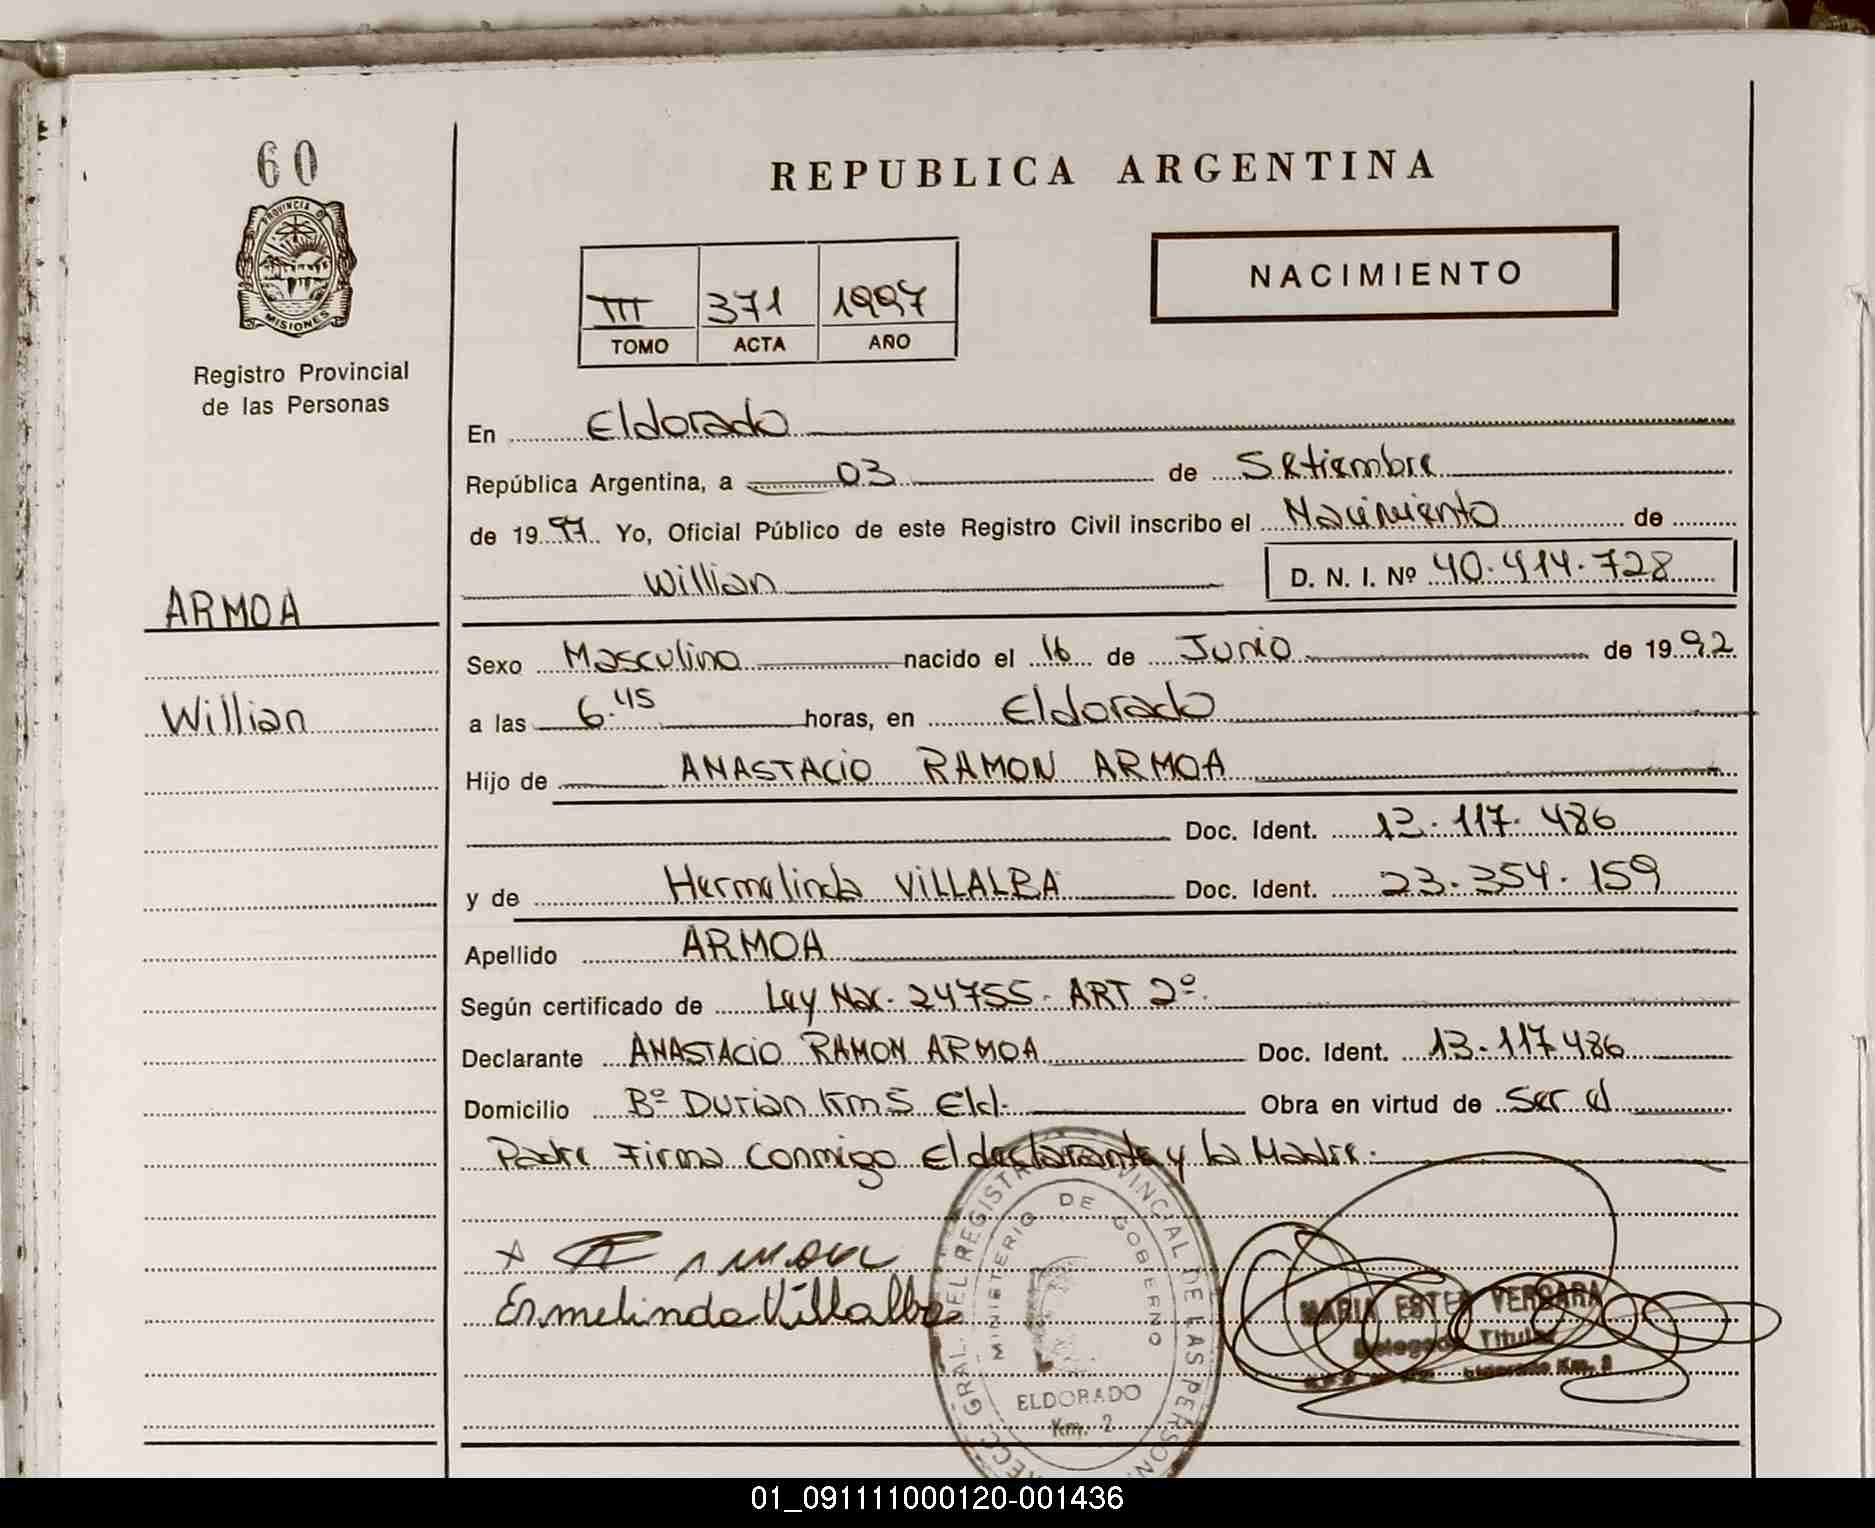 60
PROVINCIA DE
MISIONES
Registro Provincial
de las Personas
ARMOA
Willian
REPUBLICA ARGENTINA
NACIMIENTO
III 371 1997
TOMO ACTA AÑO
En Eldorado
República Argentina, a 03 de Setiembre
de 1997 Yo, Oficial Público de este Registro Civil inscribo el Nacimiento de
Willian D. N. I. Nº 40.414.728
Sexo Masculino nacido el 16 de Junio de 1992
a las 6.45 horas, en Eldorado
Hijo de ANASTACIO RAMON ARMOA
Doc. Ident. 13.117.486
y de Hermelinda VILLALBA Doc. Ident. 23.354.159
Apellido ARMOA
Según certificado de Ley Nac. 24755. ART 2º.
Declarante ANASTACIO RAMON ARMOA Doc. Ident. 13.117.486
Domicilio Bº Durian Km 5 Eld. Obra en virtud de Ser el
Padre Firma Conmigo El declarante y la Madre.
x Armoa
Ermelinda Villalba
GRAL. DEL REGISTRO PROVINCIAL DE LAS PERSON
MINISTERIO DE GOBIERNO
ELDORADO
Km. 2
MARIA ESTER VERGARA
Delegada Titular
Eldorado Km. 2
01_091111000120-001436